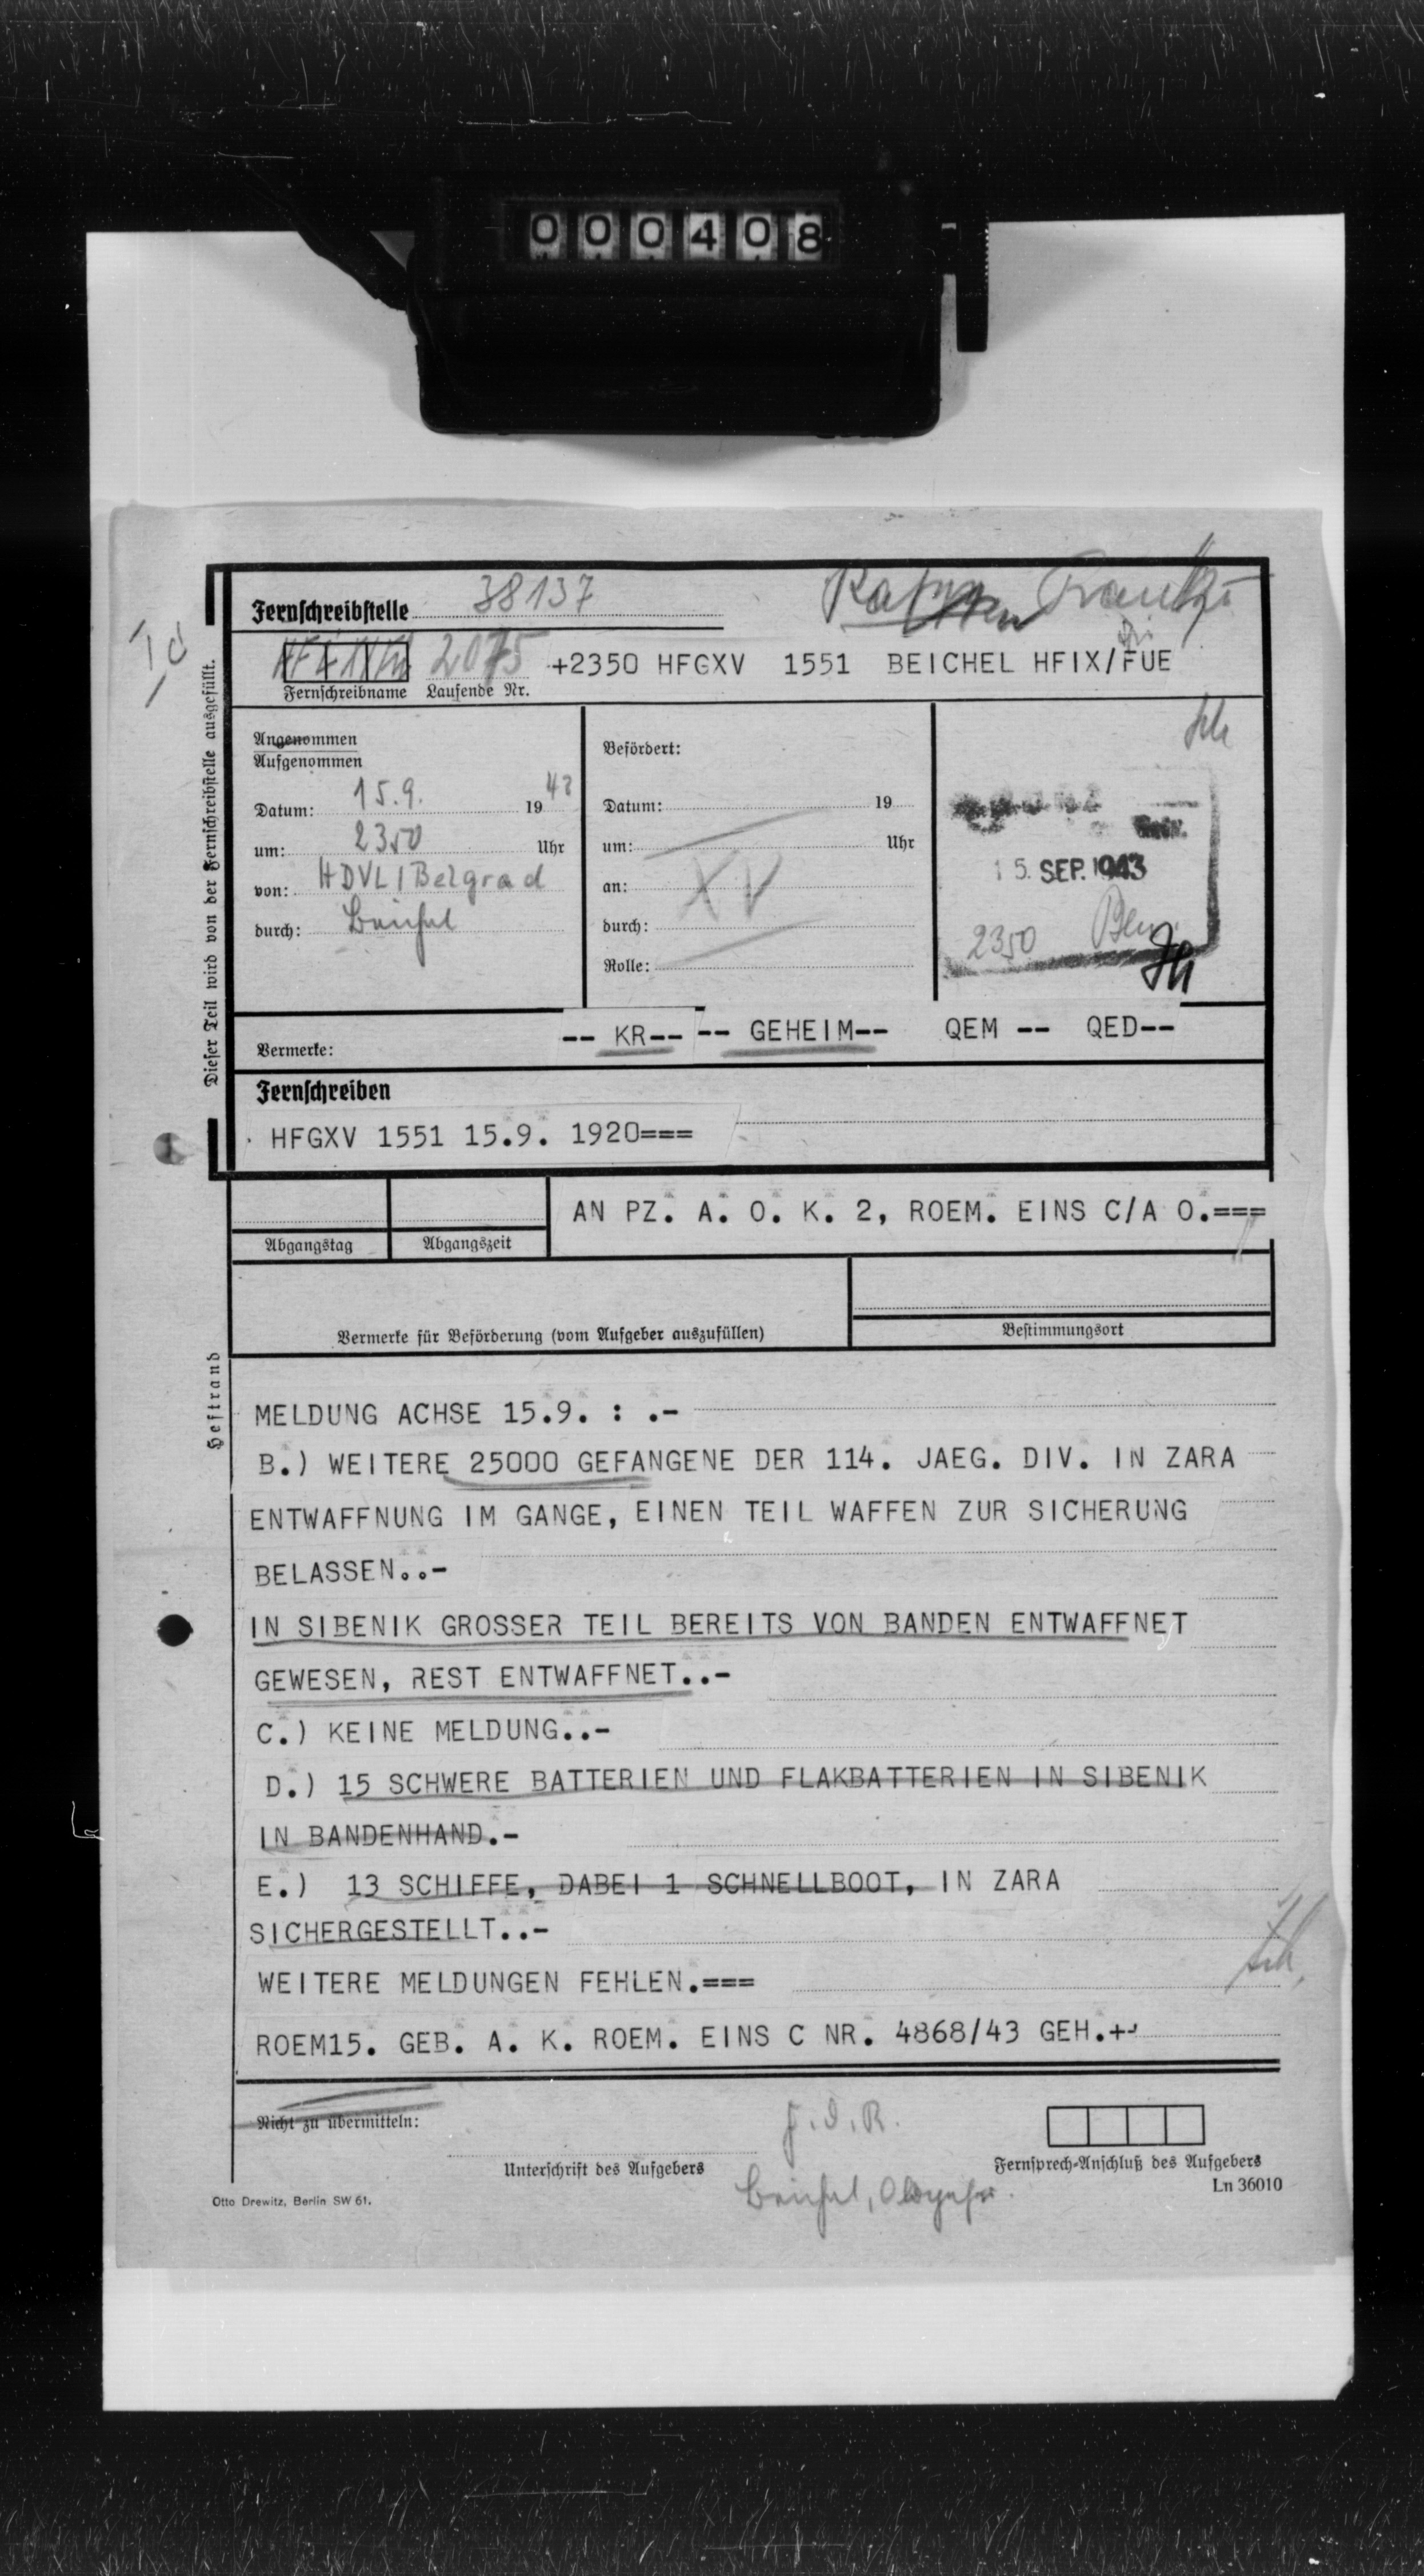 000408
Fernschreibstelle 38137
2075 +2350 HFGXV 1551 BEICHEL HFIX/FUE
Fernschreibname Laufende Nr.
Dieser Teil wird von der Fernschreibstelle ausgefüllt.
Angenommen
Aufgenommen
Datum: 15.9. 1943
um: 2350 Uhr
von: HDVL/Belgrad
durch: Beichel
Befördert:
Datum: 19
um: Uhr
an: XV
durch:
Rolle:
15. SEP. 1943
2350
Vermerke: -- KR-- -- GEHEIM-- QEM -- QED--
Fernschreiben
HFGXV 1551 15.9. 1920===
AN PZ. A. O. K. 2, ROEM. EINS C/A O.===
Abgangstag Abgangszeit
Vermerke für Beförderung (vom Aufgeber auszufüllen) Bestimmungsort
Heftrand
MELDUNG ACHSE 15.9. : .-
B.) WEITERE 25000 GEFANGENE DER 114. JAEG. DIV. IN ZARA
ENTWAFFNUNG IM GANGE, EINEN TEIL WAFFEN ZUR SICHERUNG
BELASSEN..-
IN SIBENIK GROSSER TEIL BEREITS VON BANDEN ENTWAFFNET
GEWESEN, REST ENTWAFFNET..-
C.) KEINE MELDUNG..-
D.) 15 SCHWERE BATTERIEN UND FLAKBATTERIEN IN SIBENIK
IN BANDENHAND.-
E.) 13 SCHIFFE, DABEI 1 SCHNELLBOOT, IN ZARA
SICHERGESTELLT..-
WEITERE MELDUNGEN FEHLEN.===
ROEM15. GEB. A. K. ROEM. EINS C NR. 4868/43 GEH.+
Nicht zu übermitteln:
F.d.R.
Unterschrift des Aufgebers
Fernsprech-Anschluß des Aufgebers
Beichel,
Ln 36010
Otto Drewitz, Berlin SW 61.